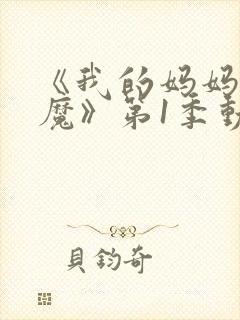 《我的妈妈
魔》第1季動
貝鈞奇